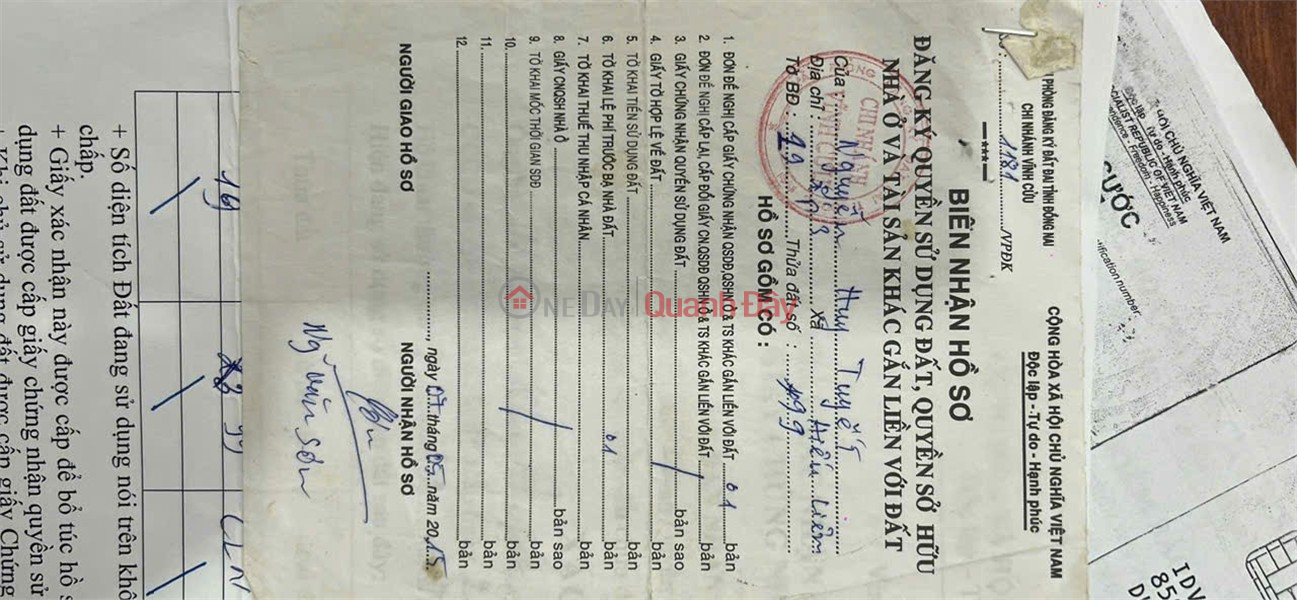 PHÒNG ĐĂNG KÝ ĐẤT ĐAI TỈNH ĐỒNG NAI
CHI NHÁNH VĨNH CỬU
1181 /VPĐK
CỘNG HÒA XÃ HỘI CHỦ NGHĨA VIỆT NAM
Độc lập - Tự do - Hạnh phúc
BIÊN NHẬN HỒ SƠ
ĐĂNG KÝ QUYỀN SỬ DỤNG ĐẤT, QUYỀN SỞ HỮU
NHÀ Ở VÀ TÀI SẢN KHÁC GẮN LIỀN VỚI ĐẤT
Của Nguyễn Huy Tuyết
Địa chỉ : xã Hiếu Liêm
Tờ BĐ : 19 Thửa đất số : 199
CHI NHÁNH
HỒ SƠ GỒM CÓ :
1. ĐƠN ĐỀ NGHỊ CẤP GIẤY CHỨNG NHẬN QSDĐ,QSHNỞ & TS KHÁC GẮN LIỀN VỚI ĐẤT 01 bản
2. ĐƠN ĐỀ NGHỊ CẤP LẠI, CẤP ĐỔI GIẤY CN.QSDĐ QSHNỞ & TS KHÁC GẮN LIỀN VỚI ĐẤT bản
3. GIẤY CHỨNG NHẬN QUYỀN SỬ DỤNG ĐẤT bản sao
4. GIẤY TỜ HỢP LỆ VỀ ĐẤT / bản
5. TỜ KHAI TIỀN SỬ DỤNG ĐẤT bản
6. TỜ KHAI LỆ PHÍ TRƯỚC BẠ NHÀ ĐẤT 01 bản
7. TỜ KHAI THUẾ THU NHẬP CÁ NHÂN bản
8. GIẤY CNQSH NHÀ Ở bản sao
9. TỜ KHAI MỐC THỜI GIAN SDĐ bản
10. / bản
11. bản
12. bản
ngày 07 tháng 05 năm 2015
NGƯỜI GIAO HỒ SƠ
NGƯỜI NHẬN HỒ SƠ
Ng Văn Sơn
ONEDAY Quanh Đây
HỘI CHỦ NGHĨA VIỆT NAM
Độc lập - Tự do - Hạnh phúc
SOCIALIST REPUBLIC OF VIET NAM
Independence - Freedom - Happiness
CƯỚC
IDV
199
+ Số diện tích Đất đang sử dụng nói trên
chấp.
+ Giấy xác nhận này được cấp để bổ túc hồ
dụng đất được cấp giấy chứng nhận quyền sử
+ Khi chủ sử dụng đất được cấp giấy Chứng